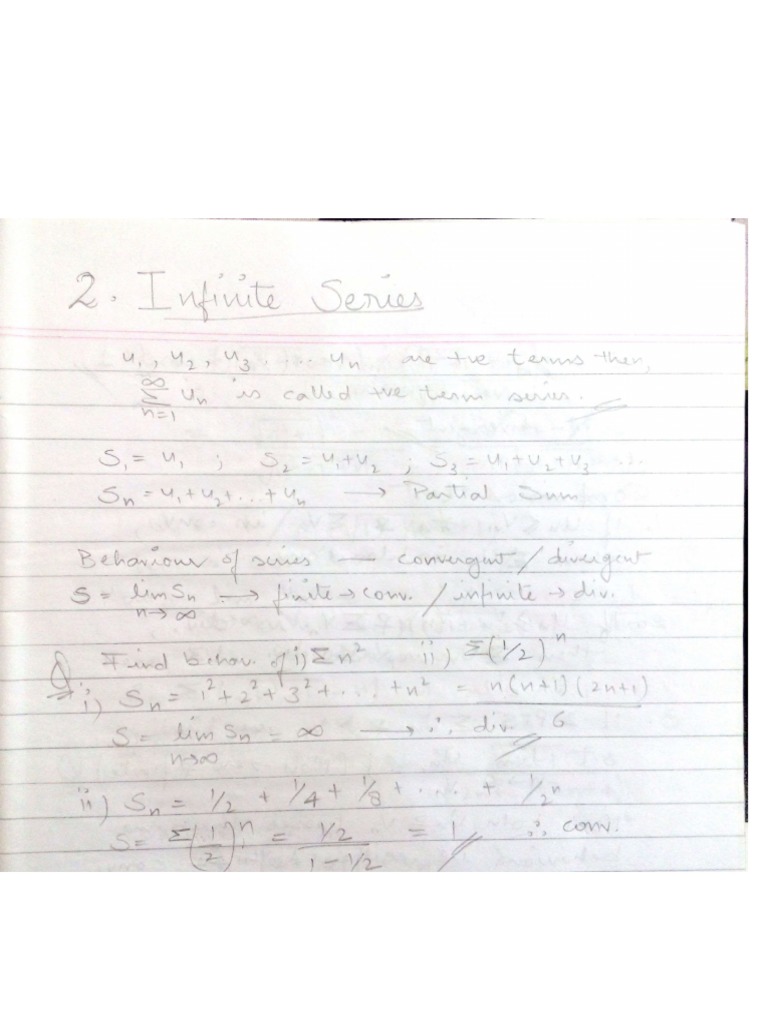 2. Infinite Series
u₁, u₂, u₃ .... uₙ are +ve terms then,
∞
Σ uₙ is called +ve term series.
n=1
S₁ = u₁ ; S₂ = u₁+u₂ ; S₃ = u₁+u₂+u₃
Sₙ = u₁+u₂+...+uₙ → Partial Sum
Behaviour of series — convergent / divergent
S = lim Sₙ → finite → conv. / infinite → div.
n→∞
Q Find behav. of i) Σn² ii) Σ(1/2)ⁿ
i) Sₙ = 1²+2²+3²+...+n² = n(n+1)(2n+1)
S = lim Sₙ = ∞ → ∴ div. 6
n→∞
ii) Sₙ = 1/2 + 1/4 + 1/8 + ... + 1/2ⁿ
S = Σ(1/2)ⁿ = 1/2 = 1 ∴ conv.
1-1/2